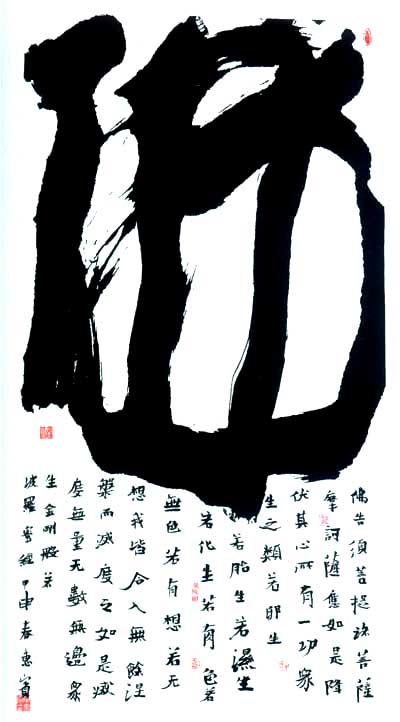 佛告須菩提諸菩薩
摩訶薩應如是降
伏其心所有一切衆
生之類若卵生
若胎生若濕生
若化生若有色若
無色若有想若无
想我皆令入無餘涅
槃而滅度之如是滅
度無量无數無邊衆
生金剛般若
波羅蜜經甲申春